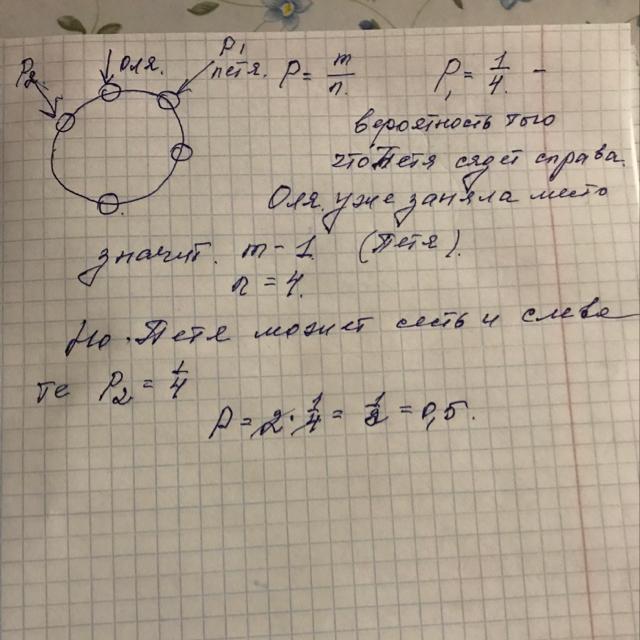 P₂
Оля.
P₁
Петя.
P = m/n.
P₁ = 1/4. –
вероятность того
что Петя сядет справа.
Оля уже заняла место
значит. m – 1 (Петя).
n = 4.
Но. Петя может сесть и слева
те P₂ = 1/4
P = 2 · 1/4 = 1/2 = 0,5.